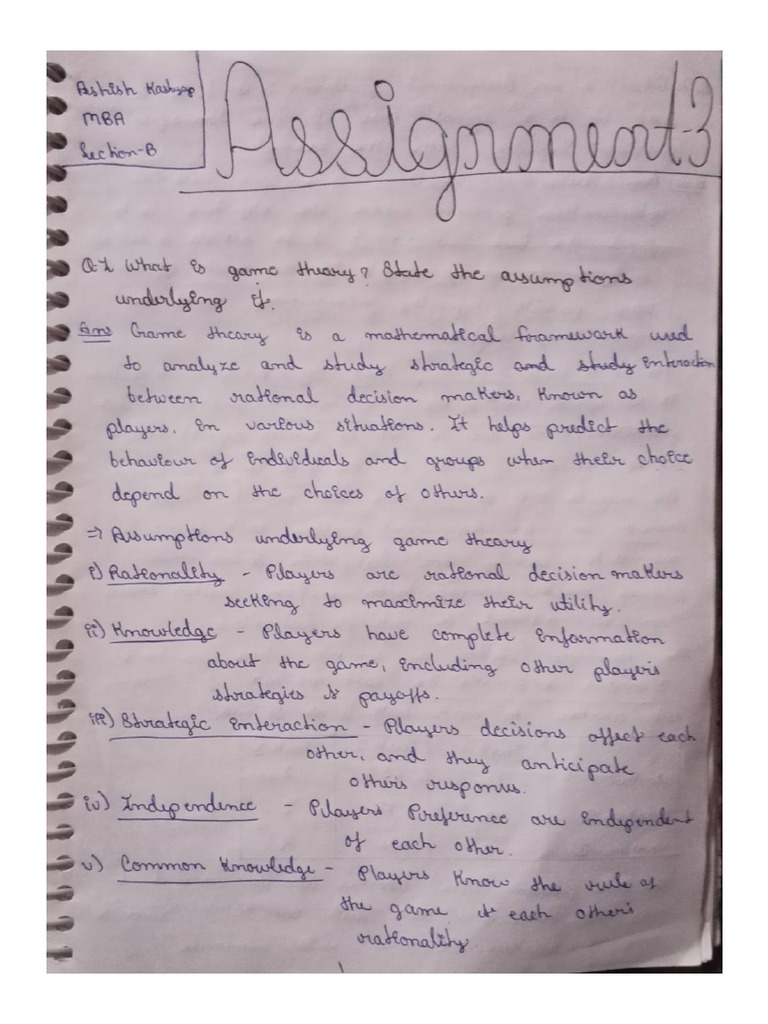 Ashish Kashyap
MBA
Section-B
Assignment-3
Q.1 What is game theory? State the assumptions
underlying it.
Ans Game theory is a mathematical framework used
to analyze and study strategic and study interaction
between rational decision makers, known as
players, in various situations. It helps predict the
behaviour of individuals and groups when their choice
depend on the choices of others.
⇒ Assumptions underlying game theory
i) Rationality - Players are rational decision makers
seeking to maximize their utility.
ii) Knowledge - Players have complete information
about the game, including other player's
strategies & payoffs.
iii) Strategic interaction - Players decisions affect each
other, and they anticipate
other's responses.
iv) Independence - Players Preference are independent
of each other.
v) Common Knowledge - Players know the rule of
the game & each other's
rationality.